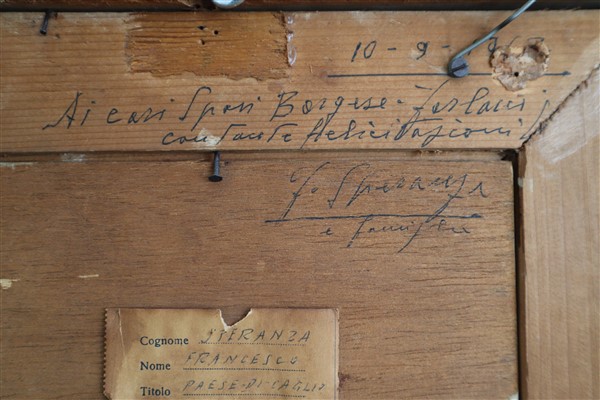 10 - 9 -
Ai cari Sposi Borgese - Forlani
con tante felicitazioni
F. Speranza
e famiglia
Cognome SPERANZA
Nome FRANCESCO
Titolo PAESE-DI